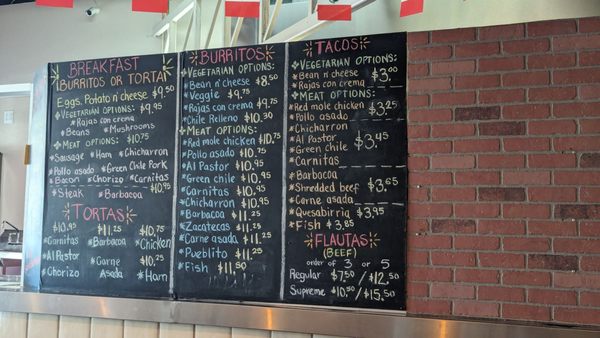 BREAKFAST
BURRITOS OR TORTA!
Eggs. Potato n' cheese $9.50
❖VEGETARIAN OPTIONS:
*Rajas con crema $9.95
*Beans *Mushrooms
❖MEAT OPTIONS: $10.75
*Sausage *Ham *Chicharron
*Pollo asado *Green Chile Pork
*Bacon *Chorizo *Carnitas
*Steak *Barbacoa $10.95
TORTAS
$10.95 $11.25 $10.75
*Carnitas *Barbacoa *Chicken
*Al Pastor *Carne $10.25
*Chorizo Asada *Ham
BURRITOS
❖VEGETARIAN OPTIONS:
*Bean n' cheese $8.50
*Veggie $9.75
*Rajas con crema $9.75
*Chile Relleno $10.30
❖MEAT OPTIONS:
*Red mole chicken $10.75
*Pollo asado $10.75
*Al Pastor $10.95
*Green chile $10.95
*Carnitas $10.95
*Chicharron $10.95
*Barbacoa $11.25
*Zacatecas $11.25
*Carne asada $11.25
*Pueblito $11.25
*Fish $11.50
TACOS
❖VEGETARIAN OPTIONS:
*Bean n' cheese $3.00
*Rajas con crema
❖MEAT OPTIONS:
*Red mole chicken $3.25
*Pollo asado
*Chicharron
*Al Pastor $3.45
*Green chile
*Carnitas
*Barbacoa
*Shredded beef $3.65
*Carne asada
*Quesabirria $3.95
*Fish $3.85
FLAUTAS
(BEEF)
order of 3 or 5
Regular $7.50 / $12.50
Supreme $10.50 / $15.50